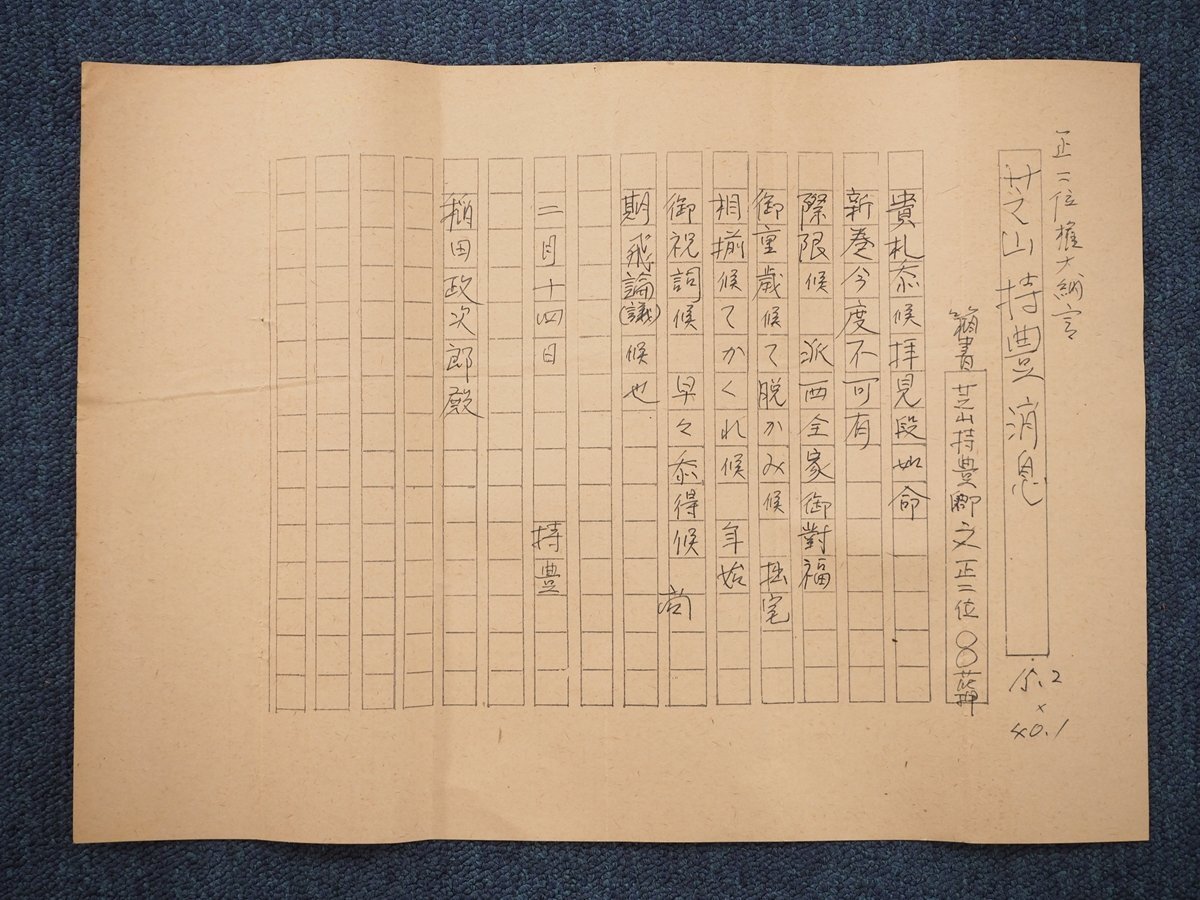 正二位権大納言
芝山持豊消息
15.2×40.1
箱書 芝山持豊卿文正二位 花押
貴札忝候拝見段如命
新春今度不可有
際限候 派西全家御對福
御重歳候て脱かみ候 拙宅
相揃候てかくれ候 年始
御祝詞候 早々忝得候 尚
期飛論(議)候也
二月十四日 持豊
稲田政次郎殿